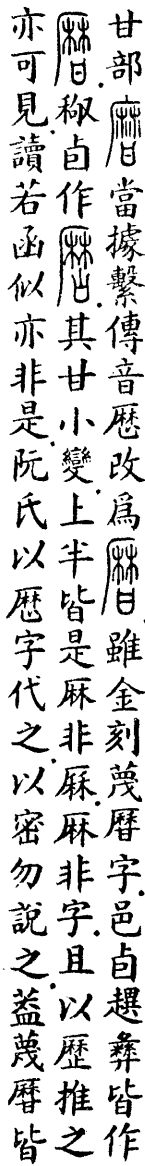 甘部當據繫傳音歷改爲雖金刻蔑曆字邑卣趩彝皆作
卣作其甘小變上半皆是厤非厤非字且以歷推之
亦可見讀若函似亦非是阮氏以歷字代之以密勿說之葢蔑曆皆